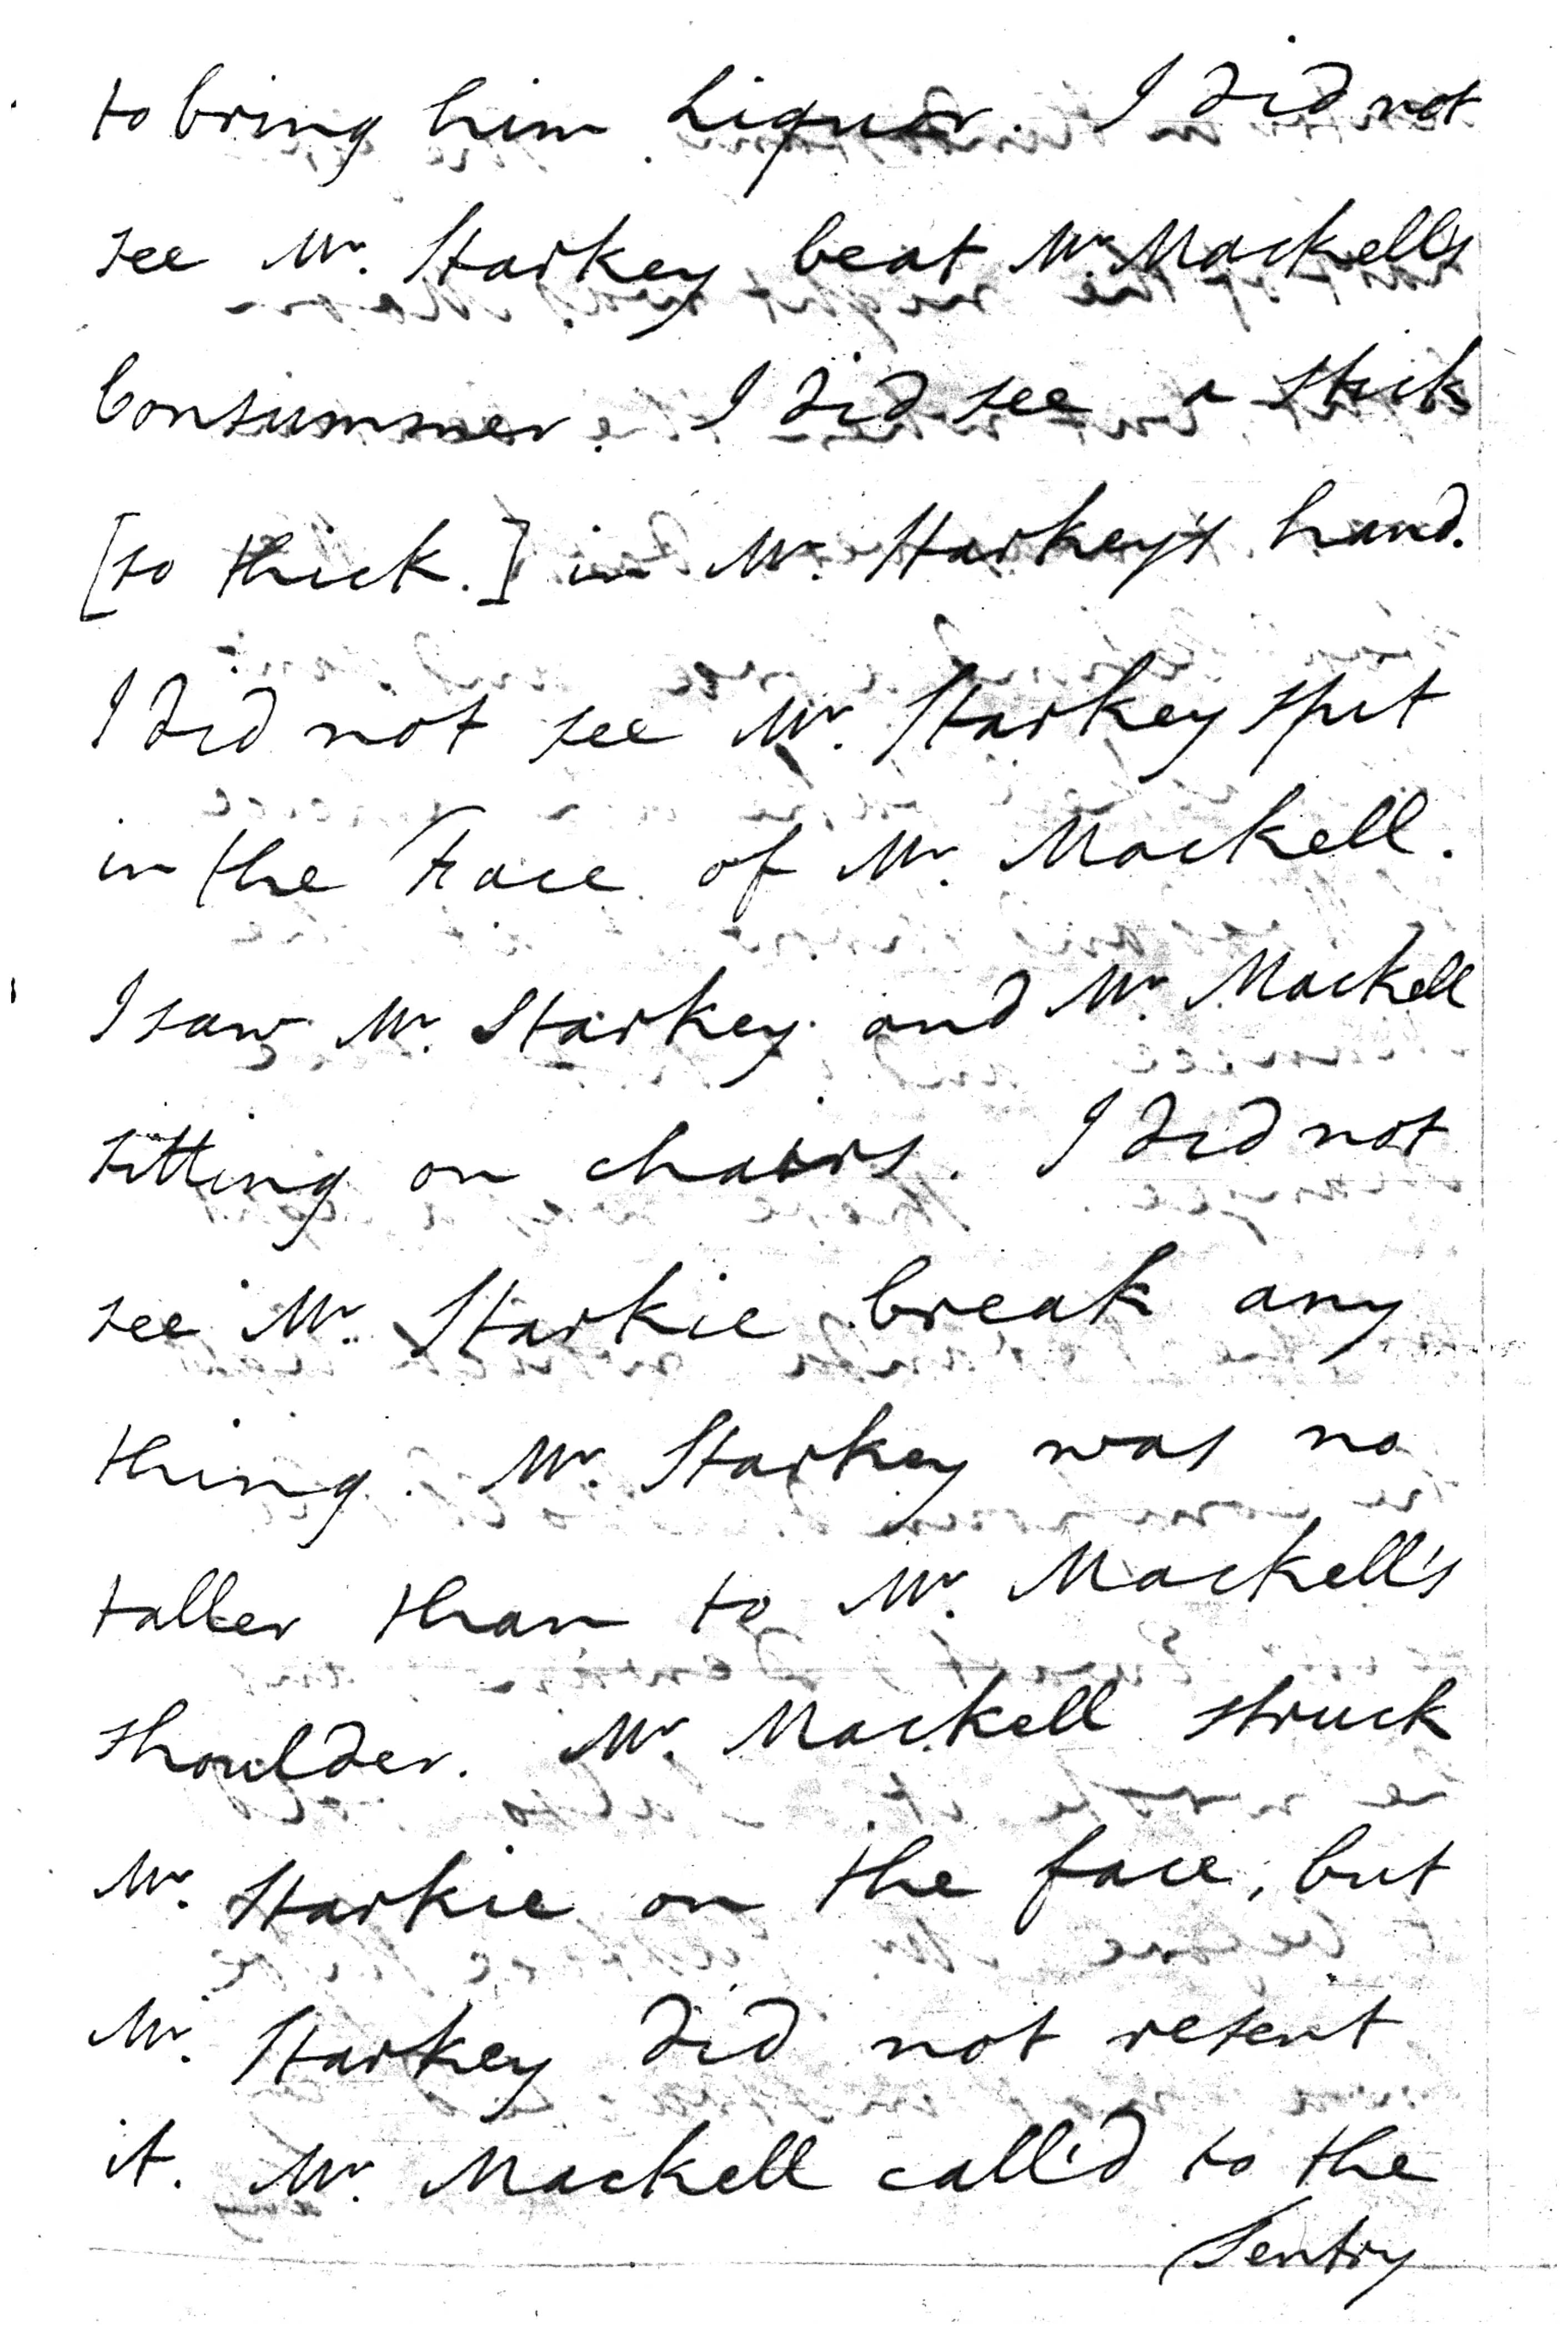 to bring him Liquor. I did not
see Mr. Starkey beat Mr. Mackell's
Consummer. I did see a stick
[so thick.] in Mr. Starkey's hand.
I did not see Mr. Starkey spit
in the Face of Mr. Mackell.
I saw Mr. Starkey and Mr. Mackell
sitting on chairs. I did not
see Mr. Starkie break any
thing. Mr. Starkey was no
taller than to Mr. Mackell's
shoulder. Mr. Mackell struck
Mr. Starkie on the face, but
Mr. Starkey did not resent
it. Mr. Mackell call'd to the
Sentry